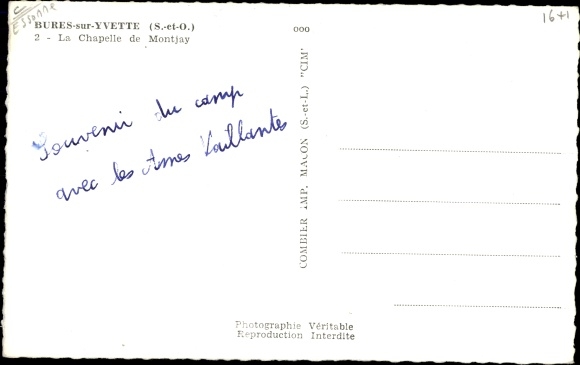 C/
Essonne
16+1
BURES-sur-YVETTE (S.-et-O.)
2 - La Chapelle de Montjay
ooo
Souvenir du camp
avec les Ames Vaillantes
COMBIER IMP. MACON (S.-et-L.) "CIM"
Photographie Véritable
Reproduction Interdite